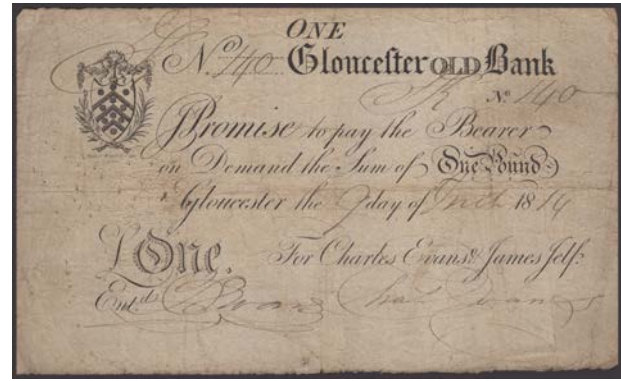 ONE
No. 140 Gloucester OLD Bank
No. 140
I Promise to pay the Bearer
on Demand the Sum of One Pound
Gloucester the 9 day of 1814
£ One. For Charles Evans & James Jelf.
Entd. Chas Evans